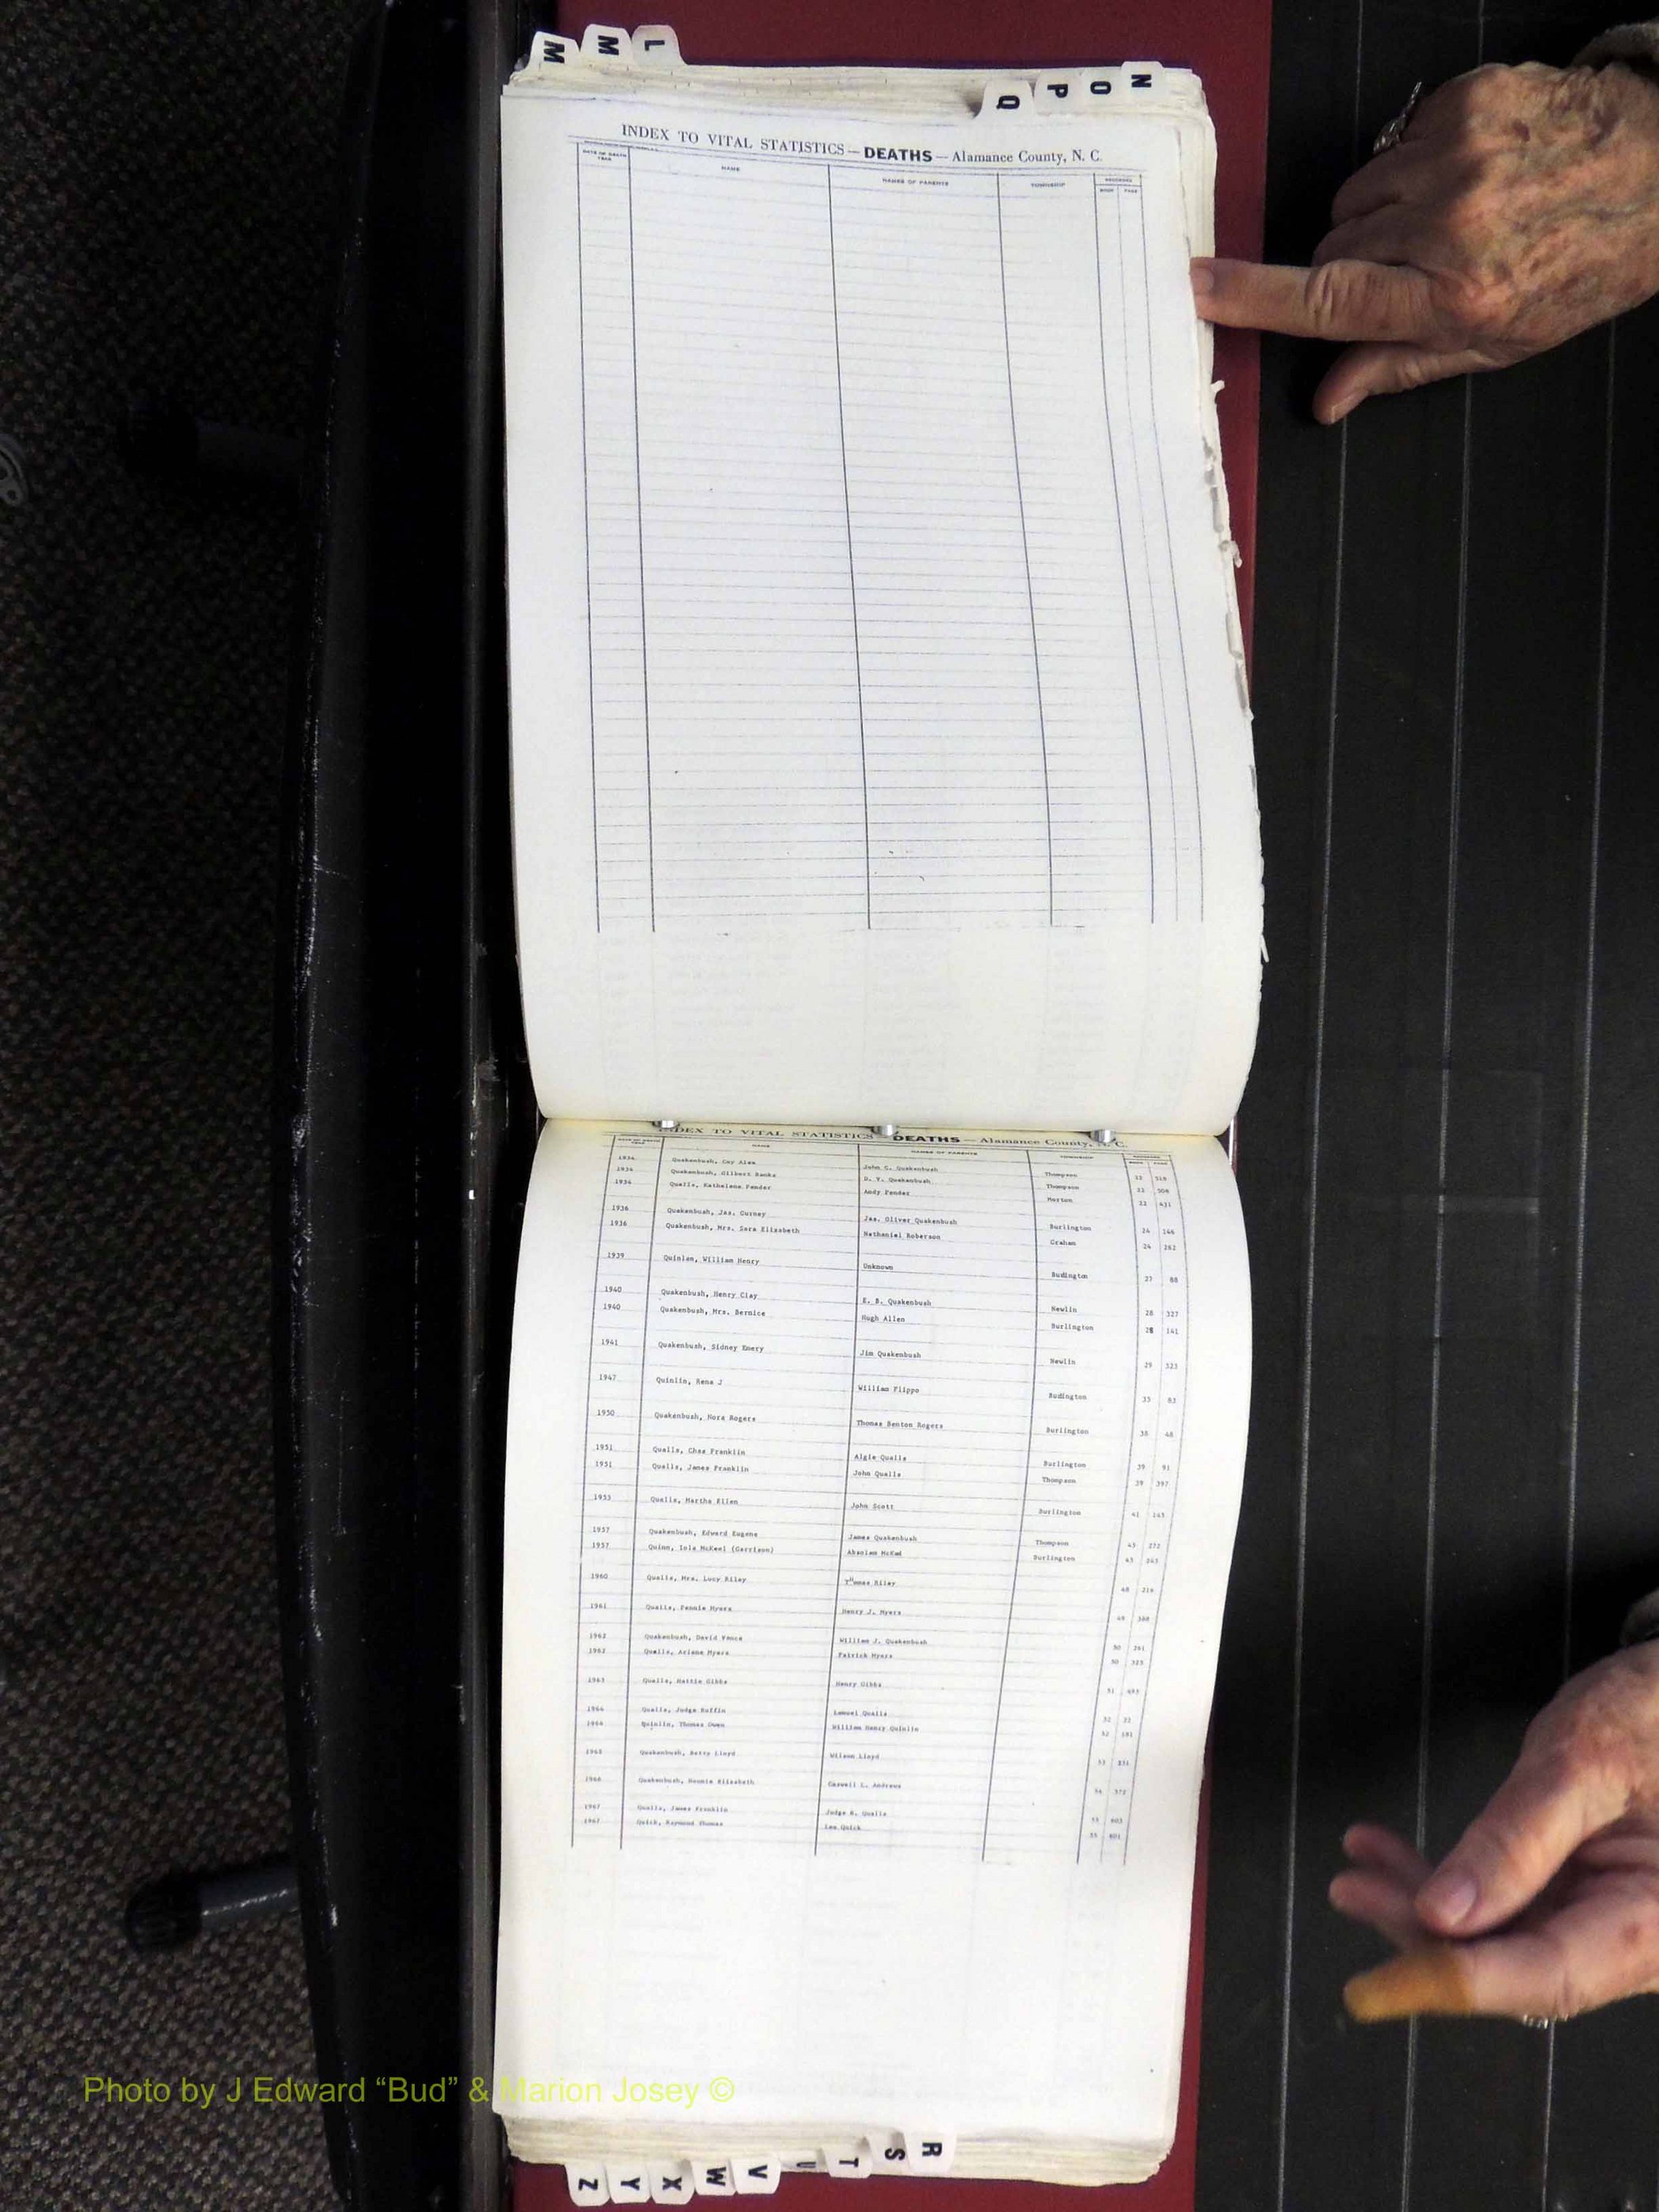 M M L
N O P Q
INDEX TO VITAL STATISTICS — DEATHS — Alamance County, N. C.
DATE OF DEATH YEAR NAME NAMES OF PARENTS TOWNSHIP RECORDED BOOK PAGE
INDEX TO VITAL STATISTICS — DEATHS — Alamance County, N. C.
DATE OF DEATH YEAR NAME NAMES OF PARENTS TOWNSHIP RECORDED BOOK PAGE
1934 Quakenbush, Coy Alen John C. Quakenbush Thompson 22 518
1934 Quakenbush, Gilbert Banks D. V. Quakenbush Thompson 22 504
1934 Qualls, Kathalene Fender Andy Fender Morton 22 431
1936 Quakenbush, Jas. Gurney Jas. Oliver Quakenbush Burlington 24 146
1936 Quakenbush, Mrs. Sara Elizabeth Nathaniel Roberson Graham 24 262
1939 Quinlan, William Henry Unknown Budington 27 88
1940 Quakenbush, Henry Clay E. B. Quakenbush Newlin 28 327
1940 Quakenbush, Mrs. Bernice Hugh Allen Burlington 28 141
1941 Quakenbush, Sidney Emery Jim Quakenbush Newlin 29 323
1947 Quinlin, Rena J William Flippo Budington 35 83
1950 Quakenbush, Nora Rogers Thomas Benton Rogers Burlington 38 48
1951 Qualls, Chas Franklin Algie Qualls Burlington 39 91
1951 Qualls, James Franklin John Qualls Thompson 39 397
1953 Qualls, Martha Ellen John Scott Burlington 41 145
1957 Quakenbush, Edward Eugene James Quakenbush Thompson 45 272
1957 Quinn, Iola McKeel (Garrison) Absolam Burlington 45
1960 Qualls, Mrs. Lucy Riley Thomas Riley 48 216
1961 Qualls, Fannie Myers Henry J. Myers 49 388
1962 Quakenbush, David Vance William J. Quakenbush 50 261
1962 Qualls, Arlene Myers Patrick Myers 50 325
1963 Qualls, Hattie Gibbs Henry Gibbs 51
1964 Qualls, Judge Ruffin Lemuel Qualls 52 22
1964 Quinlin, Thomas Owen William Henry Quinlin 52 181
1965 Quakenbush, Betty Lloyd Wilson Lloyd 53
1966 Quakenbush, Nonnie Elizabeth Caswell L. Andrews 54 372
1967 Qualls, James Franklin Judge R. Qualls 55 603
1967 Quick, Raymond Thomas Lee Quick 55 601
Photo by J Edward “Bud” & Marion Josey ©
R S T U V W X Y Z